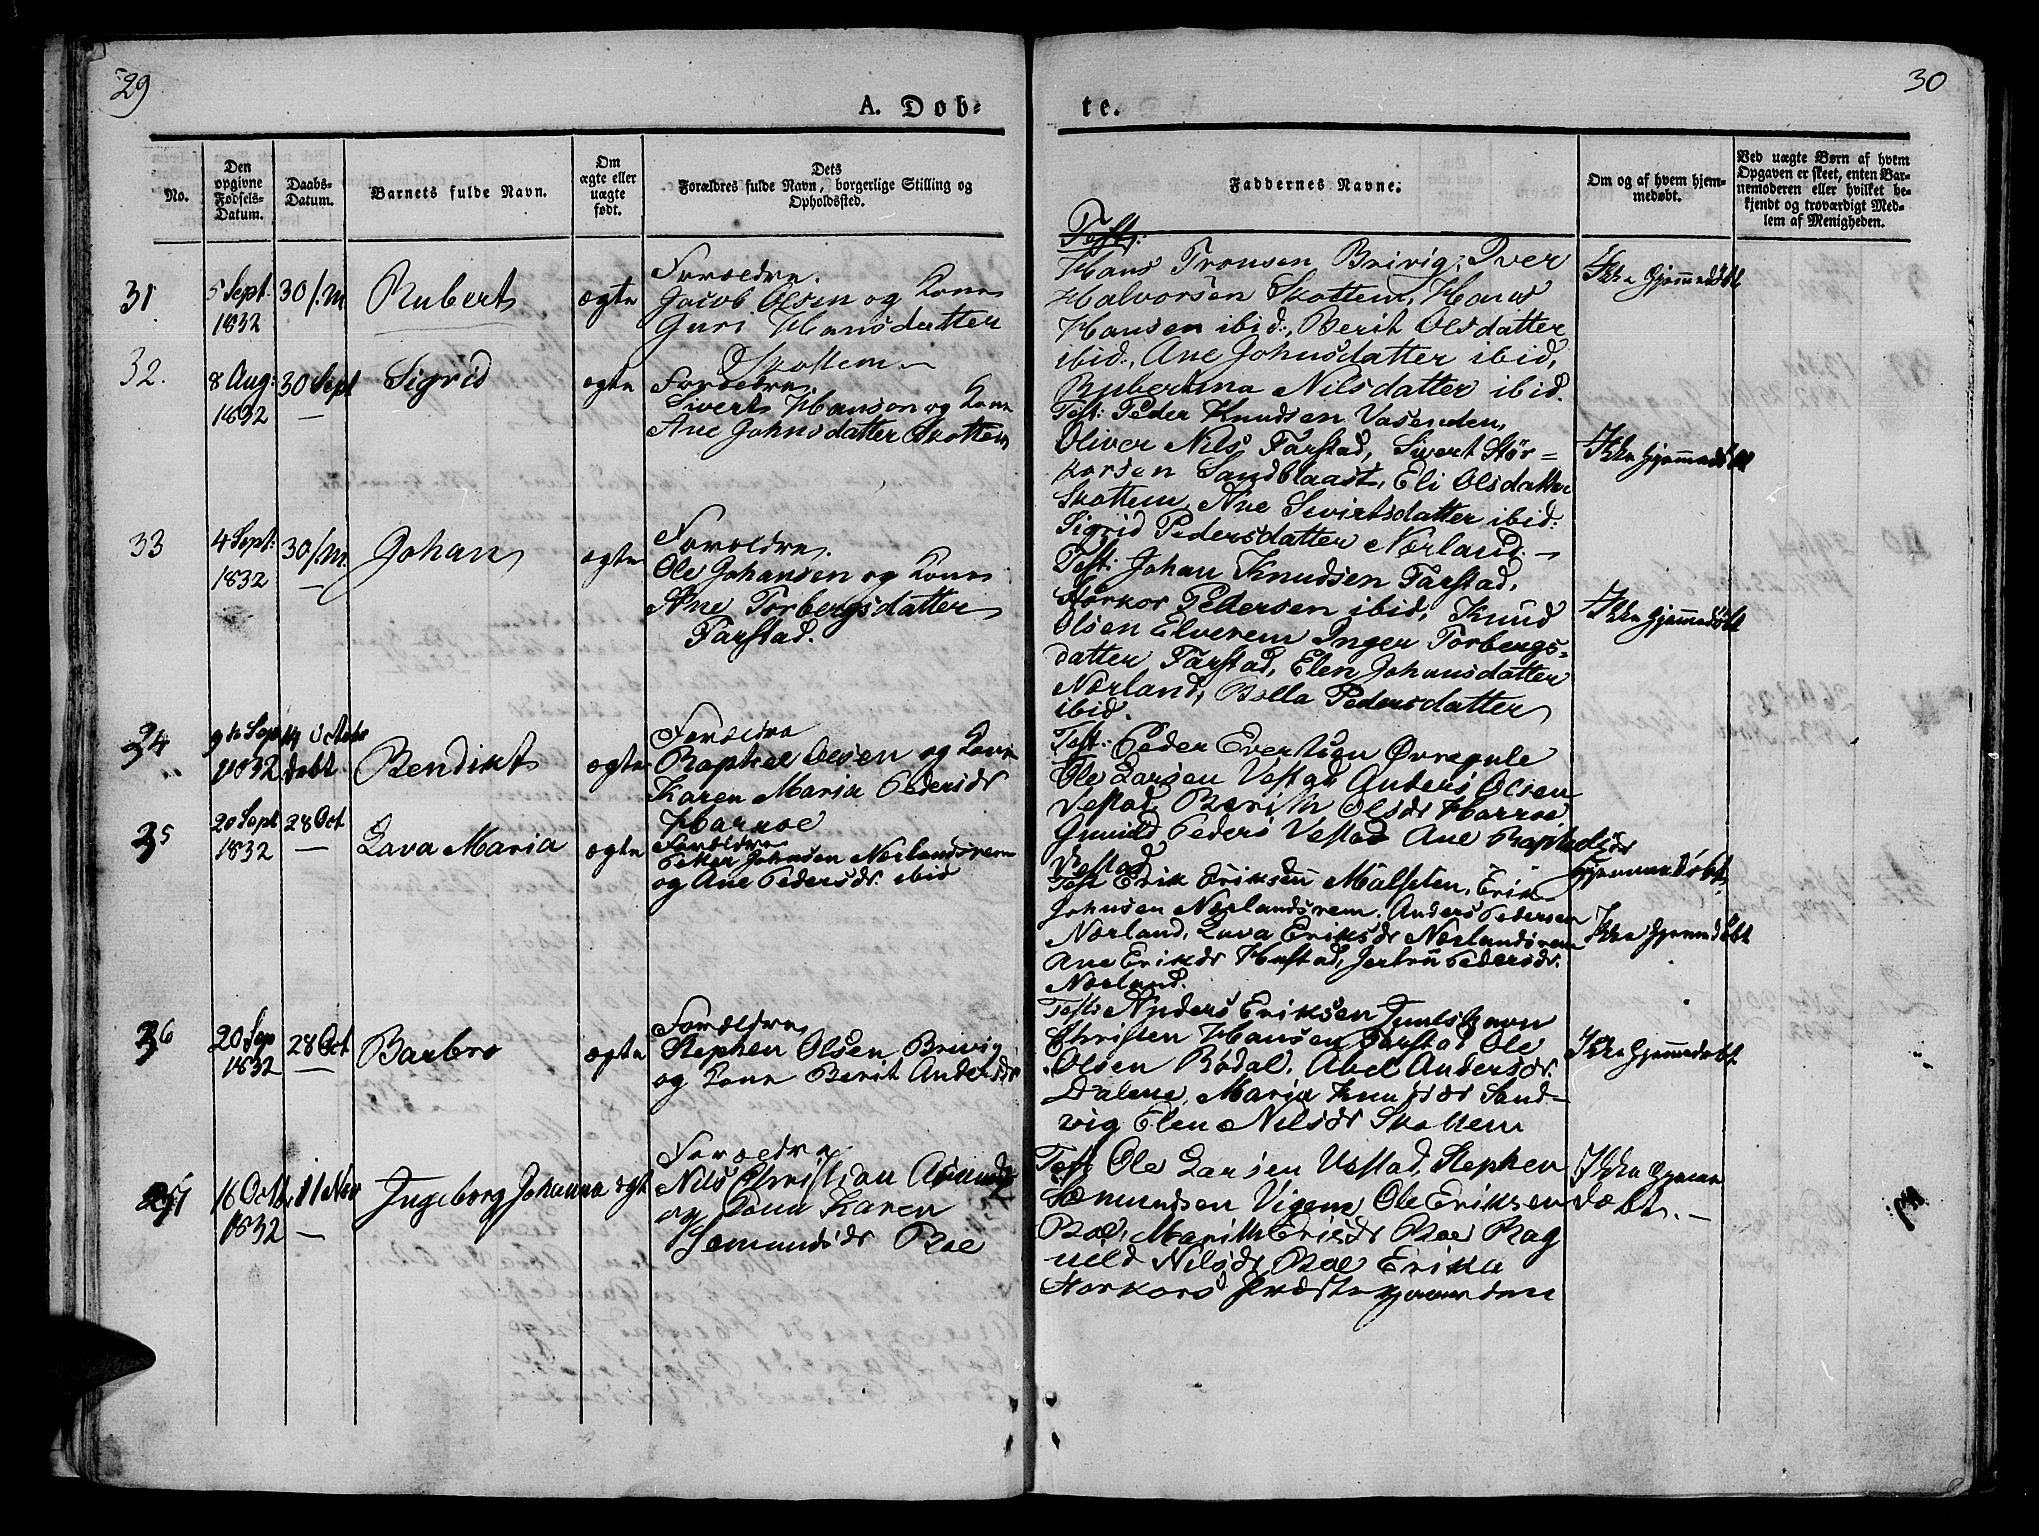 29
30
A. Døb-
te.
No.
Den opgivne Fødsels-Datum.
Daabs-Datum.
Barnets fulde Navn.
Om ægte eller uægte født.
Dets Forældres fulde Navn, borgerlige Stilling og Opholdssted.
Faddernes Navne.
Om og af hvem hjemmedøbt.
Ved uægte Børn af hvem
Opgaven er skeet, enten Bar-
nemoderen eller hvilket be-
kjendt og troværdigt Med-
lem af Menigheden.
31 5 Sept. 1832 30 s.m. Rubert ægte
Forældre.
Jacob Olsen og Kone
Guri Hansdatter
Skottem
Test:
Hans Tronsen Brivig, Iver
Halvorsen Skottem, Hans
Hansen ibid:, Berit Olsdatter
ibid:, Ane Johnsdatter ibid,
Rubertina Nilsdatter ibid.
Ikke Hjemmedøbt
32. 8 Aug: 1832 30 Sept Sigrid ægte
Forældre.
Sivert Hanson og Kone
Ane Johnsdatter Skottem
Test: Peder Knudsen Vasenden,
Oliver Nils Farstad, Sivert Stör-
korsen Sandblaast, Eli Olsdatter
Skottem, Ane Sivertsdatter ibid:
Sigrid Pedersdatter Nørland. -
Ikke Hjemmedøbt
33 4 Sept: 1832 30 s.m. Johan ægte
Forældre.
Ole Johansen og Kone
Ane Torbergsdatter
Farstad.
Test: Johan Knudsen Farstad,
Störkor Pedersen ibid, Knud
Olsen Elverem Inger Torbergs-
datter Farstad, Elen Johansdatter
Nørland, Bolla Pedersdatter
ibid.
Ikke Hjemmedøbt
34 9de Sep 1832 14 October døbt Bendikt ægte
Forældre
Raphael Olsen og Kone
Karen Maria Pedersdr
Harnoe
Test: Peder Evertsen Øvrepule
Ole Larsen Vestad Anders Olsen
Vestad, Berith Olsdr Harnoe,
Gunild Peders Vestad Ane Raphaelsdr
Vestad
Hjemmedøbt
35 20 Sept 1832 28 Oct Lava Maria ægte
Forældre
Peter Johnsen Norlandsrem
og Ane Pedersdr. ibid
Test Erik Eriksen Malseten, Erik
Johnsen Nørlandsrem, Anders Pedersen
Nørland, Lava Eriksdr Nørlandsrem
Ane Eriksdr Hustad, Jertru Pedersdr.
Nørland.
Ikke Hjemmedøbt
36 20 Sep 1832 28 Oct Barbro ægte
Forældre
Stephen Olsen Brivig
og Kone Berit Andersdr
Test: Anders Eriksen
Christen Hansen Farstad Ole
Olsen Bødal, Abel Andersdr.
Dalene, Maria Knudsdr Sand-
vig Elen Nilsdr Skottem
Ikke Hjemmedøbt
37 16 Octb. 1832 11 Nov Ingeborg Johanna ægt
Forældre
Nils Christian
og Kone Karen
Semundsdr Boe
Test Ole Larsen Vestad, Stephen
Sæmundsen Vigen Ole Eriksen
Boe, Marith Eriksdr Boe Rag
nild Nilsdr Boe Erika
Storkors Præstegaarden
Ikke Hjemme
døbt. -